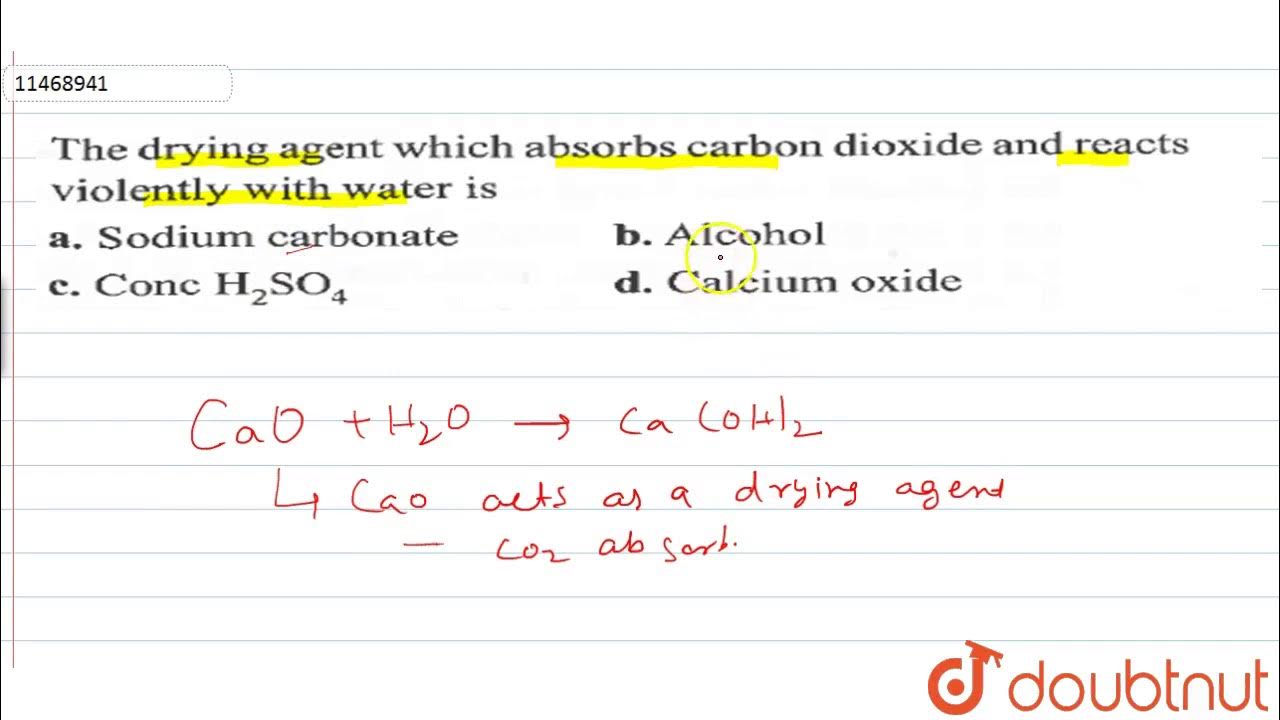 11468941
The drying agent which absorbs carbon dioxide and reacts
violently with water is
a. Sodium carbonate b. Alcohol
c. Conc H₂SO₄ d. Calcium oxide
CaO + H₂O → Ca (OH)₂
↳ CaO acts as a drying agent
— CO₂ absorb.
doubtnut